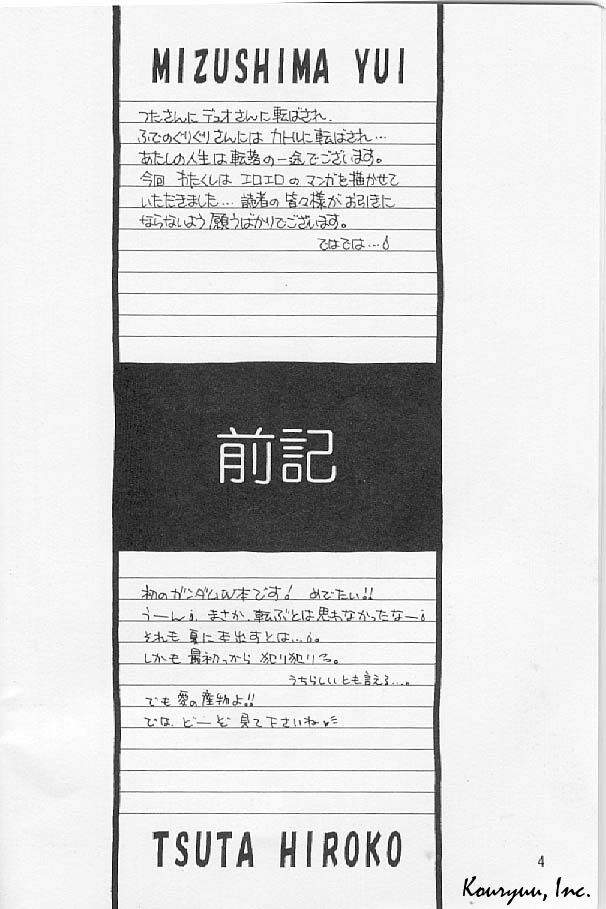 MIZUSHIMA YUI
つたさんに デュオさんに転ばされ、
ふでのぐりぐりさんには カトルに転ばされ…
あたしの人生は転落の一途でございます。
今回 わたくしは エロエロの マンガを描かせて
いただきました… 読者の 皆々様が お引きに
ならないよう 願うばかりでございます。
ではでは…
前記
初のガンダムW本です! めでたい!!
うーん、まさか、転ぶとは思わなかったなー
それも 夏に 本出すとは…。
しかも 最初っから 犯り犯りる。
うちらしいとも言える…。
でも 愛の産物よ!!
では、どーぞ 見て下さいね
TSUTA HIROKO
4
Kouryuu, Inc.